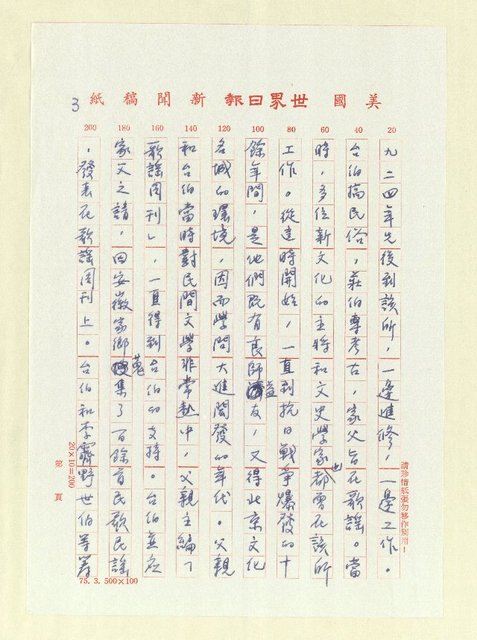 美國世界日報新聞稿紙
3
20
40
60
80
100
120
140
160
180
200
九二四年先後到該所，一邊進修，一邊工作。
台伯搞民俗，莊伯專考古，家父旨在歌謠。當
時，多位新文化的主將和文史學家也都曾在該所
工作。從這時開始，一直到抗日戰爭爆發的十
餘年間，是他們既有良師益友，又得北京文化
名城的環境，因而學問大進闊發的年代。父親
和台伯當時對民間文學非常熱中，父親主編「
歌謠周刊」，一直得到台伯的支持。台伯並應
家父之請，回安徽家鄉蒐集了百餘首民歌民謠
，發表在歌謠周刊上。台伯和李霽野世伯等籌
請珍惜紙張勿移作別用！
20×10＝200
第　頁
75.3.500×100